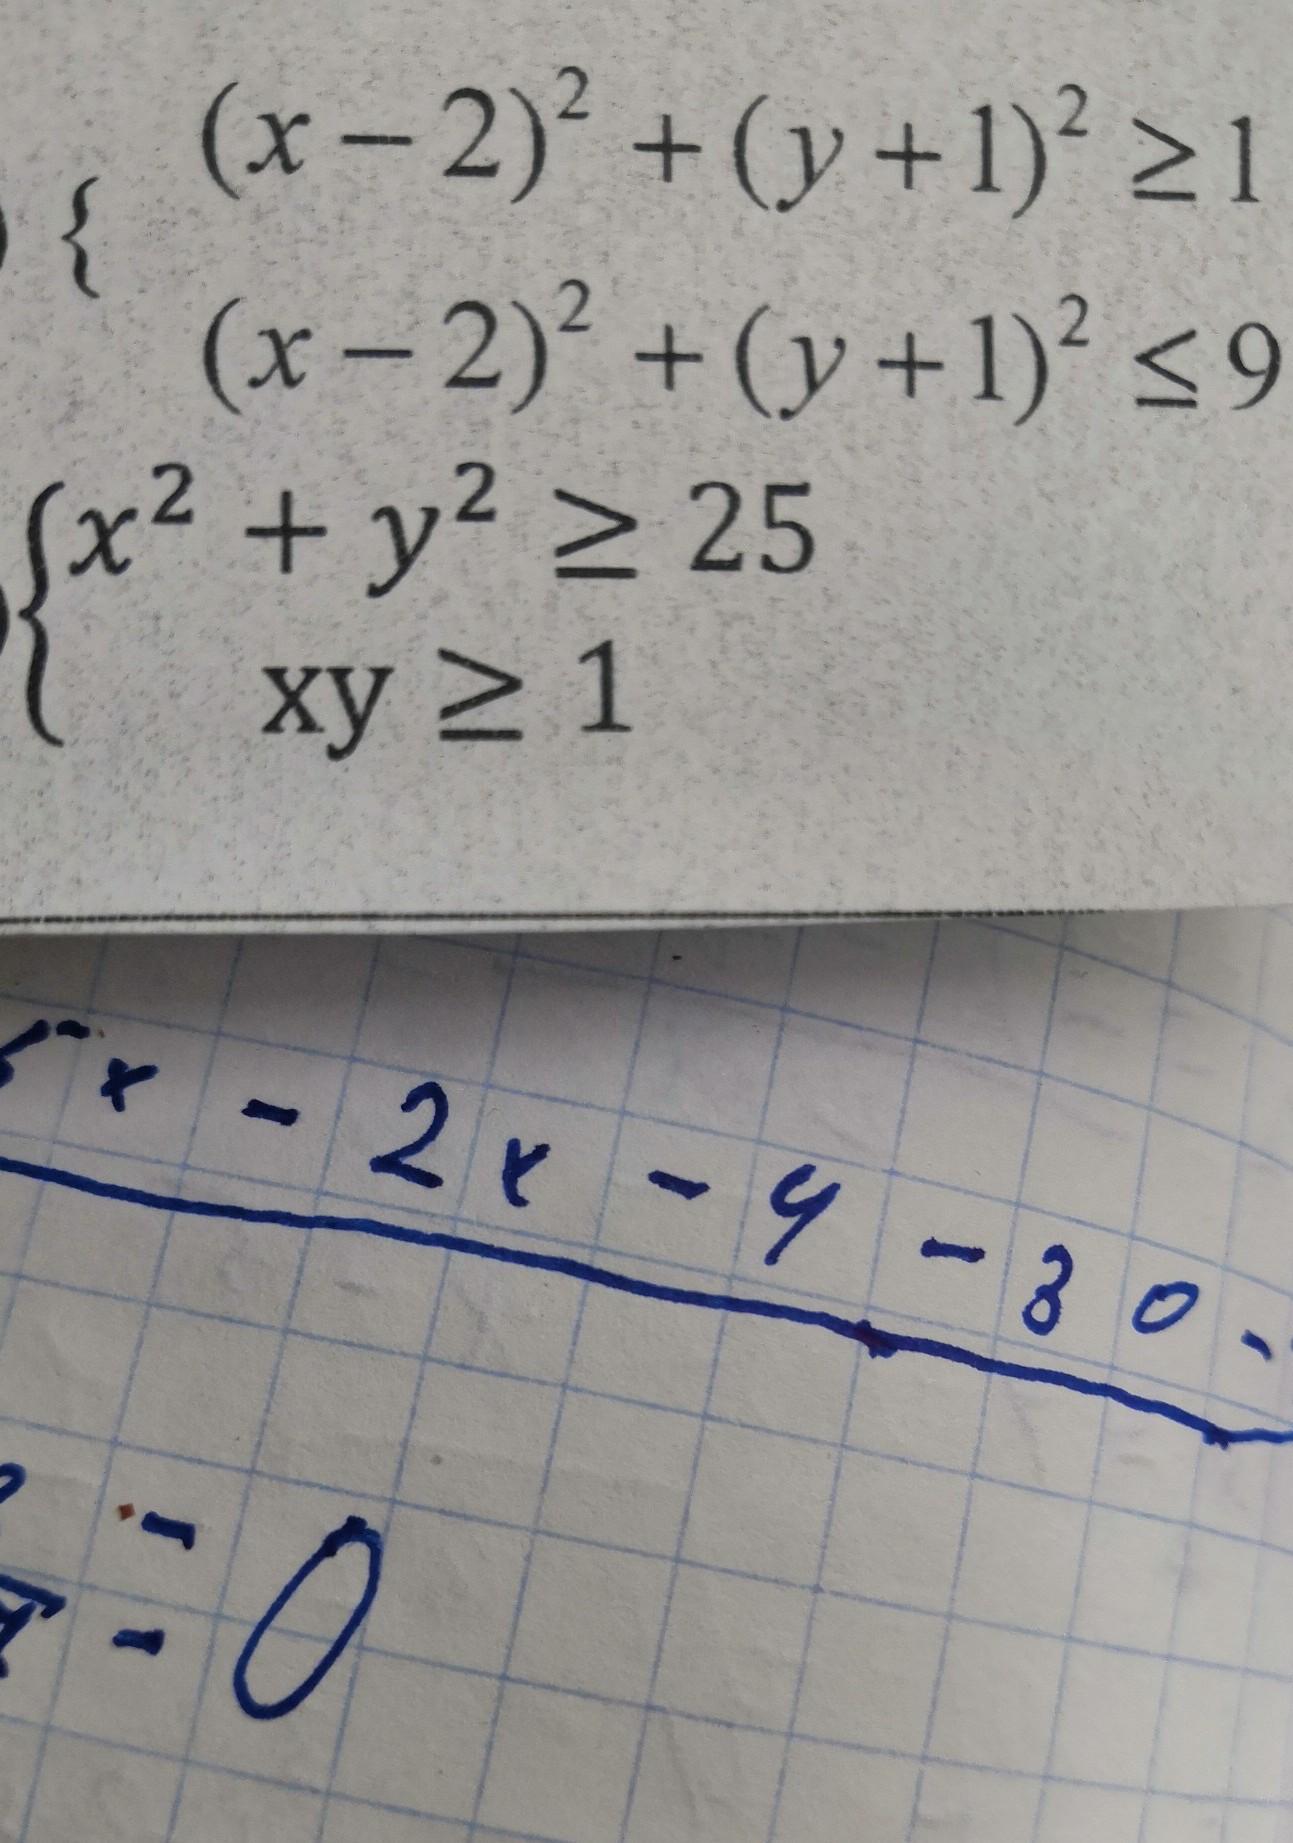 { (x − 2)² + (y + 1)² ≥ 1
(x − 2)² + (y + 1)² ≤ 9
{ x² + y² ≥ 25
xy ≥ 1
5x - 2x - 4 - 30 -
- 0